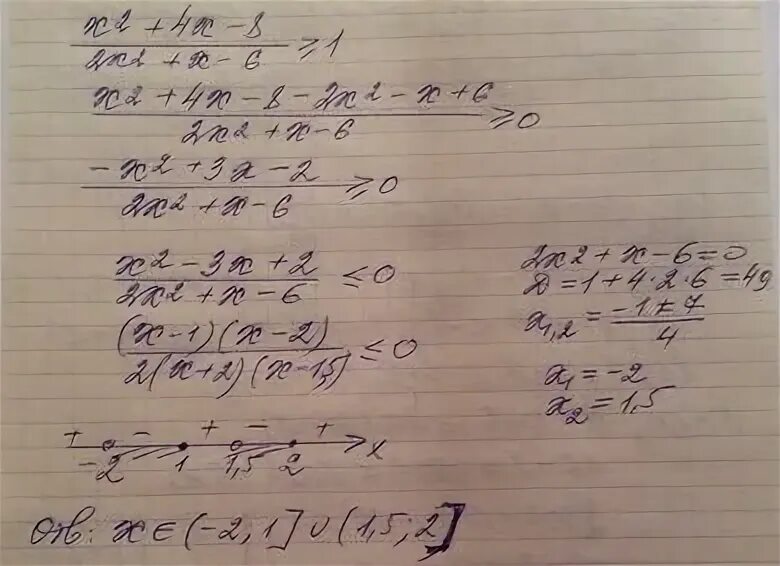 x2 + 4x - 8
2x2 + x - 6 ≥ 1
x2 + 4x - 8 - 2x2 - x + 6
2x2 + x - 6 ≥ 0
-x2 + 3x - 2
2x2 + x - 6 ≥ 0
x2 - 3x + 2
2x2 + x - 6 ≤ 0
(x-1)(x-2)
2(x+2)(x-1,5) ≤ 0
+ - + - +
-2 1 1,5 2 x
2x2 + x - 6 = 0
D = 1 + 4·2·6 = 49
x1,2 = -1 ± 7
4
x1 = -2
x2 = 1,5
Отв: x ∈ (-2, 1] ∪ (1,5; 2]